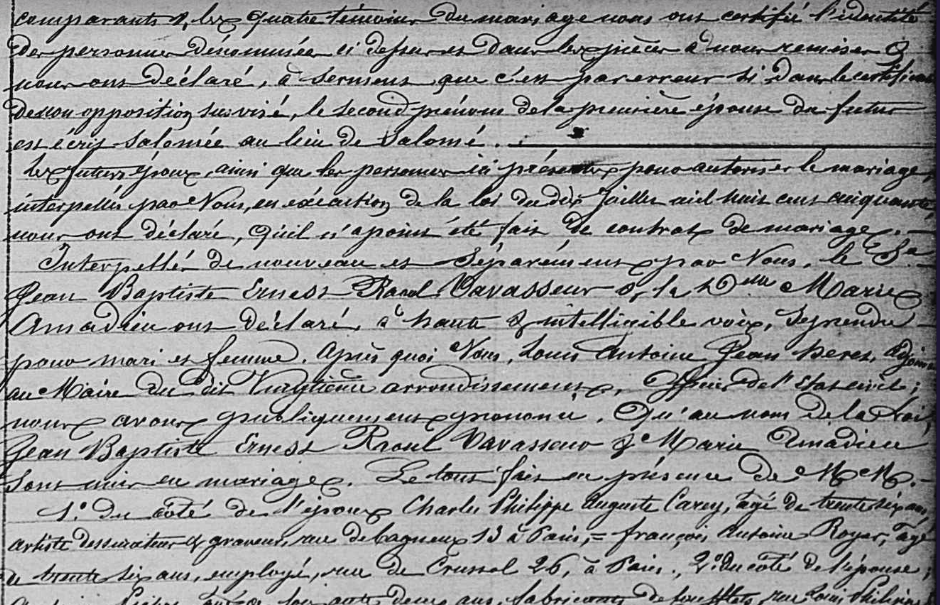 comparants &, les quatre témoins du mariage nous ont certifié l'identité
des personnes dénommées ci dessus et dans les pièces à nous remises &
nous ont déclaré, à serment que c'est par erreur si dans le certificat
de non opposition susvisé, le second prénom de la première épouse du futur
est écrit Salomée au lieu de Salomé.
Les futurs époux, ainsi que les personnes ici présentes pour autoriser le mariage,
interpellés par Nous, en exécution de la loi du dix Juillet mil huit cent cinquante,
nous ont déclaré, qu'il n'a point été fait de contrat de mariage.
Interpellé de nouveau et Séparément par Nous, le Sr
Jean Baptiste Ernest Raoul Vavasseur & la Delle Marie
Amadieu ont déclaré, à haute & intelligible voix, Se prendre
pour mari et femme. Après quoi Nous, Louis Antoine Jean adjoint
au Maire du dit Vingtième arrondissement, Officier de l'Etat civil;
nous avons publiquement prononcé. Qu'au nom de la Loi,
Jean Baptiste Ernest Raoul Vavasseur & Marie Amadieu
Sont unis en mariage. Le tout fait en présence de M M.
1° du côté de l'époux Charles Philippe Auguste Carey, âgé de trente six ans,
artiste dessinateur & graveur, rue de bagneux 13 à Paris, = françois Antoine Royer, âgé
de trente six ans, employé, rue de Crussol 26, à Paris., 2° du côté de l'épouse;
soixante deux ans, fabricant de soufflets, rue Louis Philippe